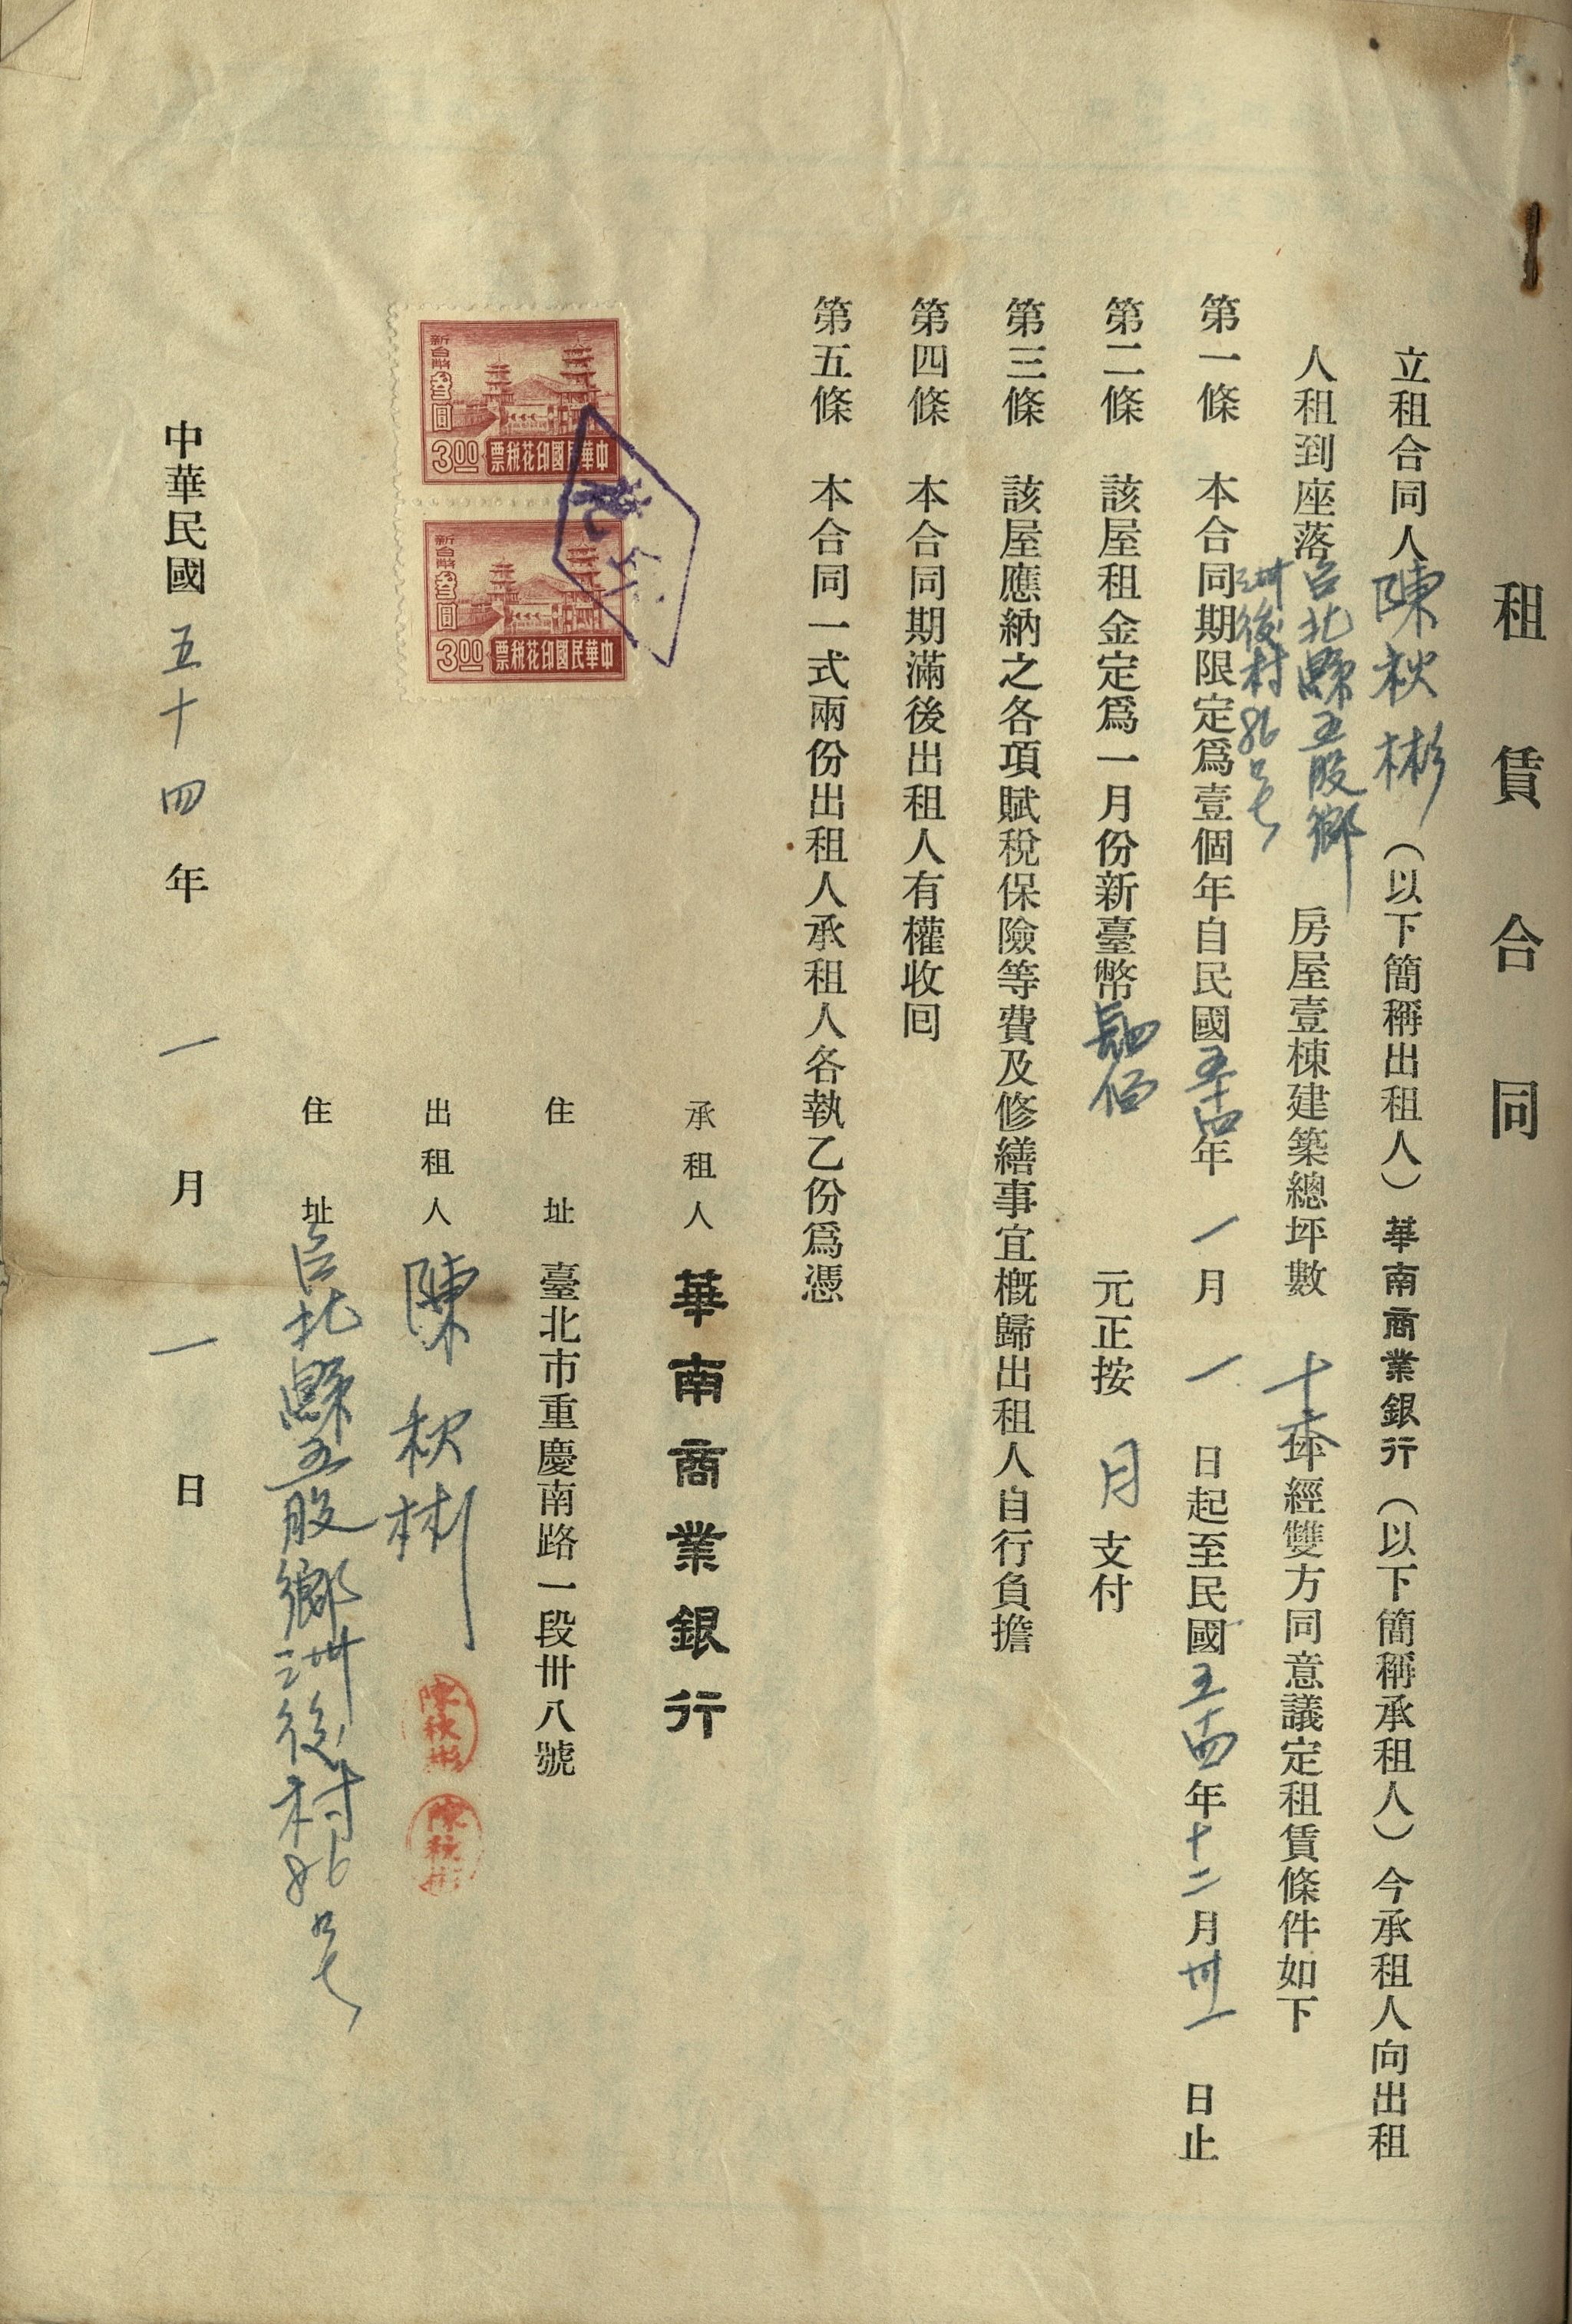 租賃合同
立租合同人陳秋彬（以下簡稱出租人）華南商業銀行（以下簡稱承租人）今承租人向出租
人租到座落台北縣五股鄉洲後村86号房屋壹棟建築總坪數十六坪經雙方同意議定租賃條件如下
第一條 本合同期限定爲壹個年自民國五十四年一月一日起至民國五十四年十二月卅一日止
第二條 該屋租金定爲一月份新臺幣肆佰元正按月支付
第三條 該屋應納之各項賦稅保險等費及修繕事宜概歸出租人自行負擔
第四條 本合同期滿後出租人有權收回
第五條 本合同一式兩份出租人承租人各執乙份爲憑
承租人 華南商業銀行
住址 臺北市重慶南路一段卅八號
出租人 陳秋彬
陳秋彬
陳秋彬
住址 台北縣五股鄉洲後村86号
中華民國五十四年一月一日
新台幣叁圓
3.00
中華民國印花稅票
新台幣叁圓
3.00
中華民國印花稅票